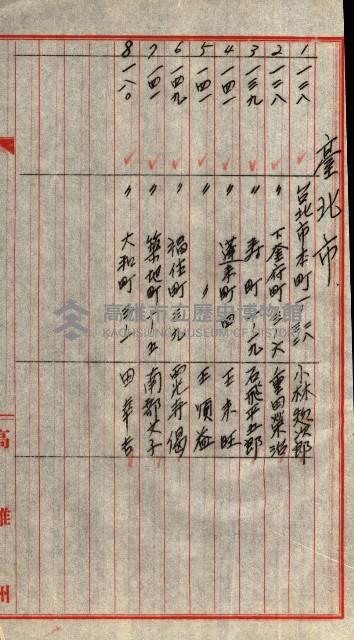 臺北市.
1 一二八 台北市本町一ノ二八 小林惣次郎
2 一二八 〃 下奎府町三ノ六 重田榮治
3 一三九 〃 壽町 一九 石飛平五郎
4 一四一 〃 蓬萊町四 王未旺
5 一四一 〃 〃 王順益
6 一四九 〃 福住町三九
7 一四一 〃 築地町 五
8 一八〇 〃 大和町三ノ一
高雄州
高雄市立歷史博物館
KAOHSIUNG MUSEUM OF HISTORY